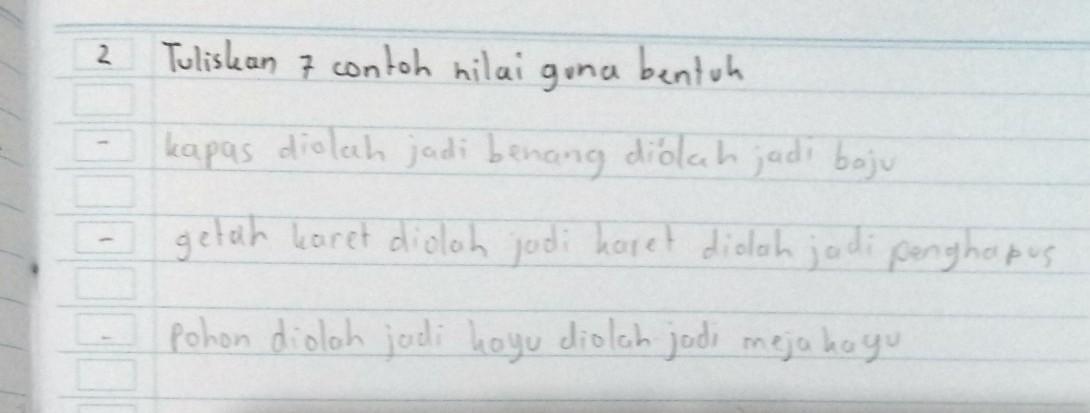 2 Tuliskan 7 contoh nilai guna bentuh
- kapas diolah jadi benang diolah jadi baju
- getah karet diolah jadi karet diolah jadi penghapus
- Pohon diolah jadi kayu diolah jadi meja kayu